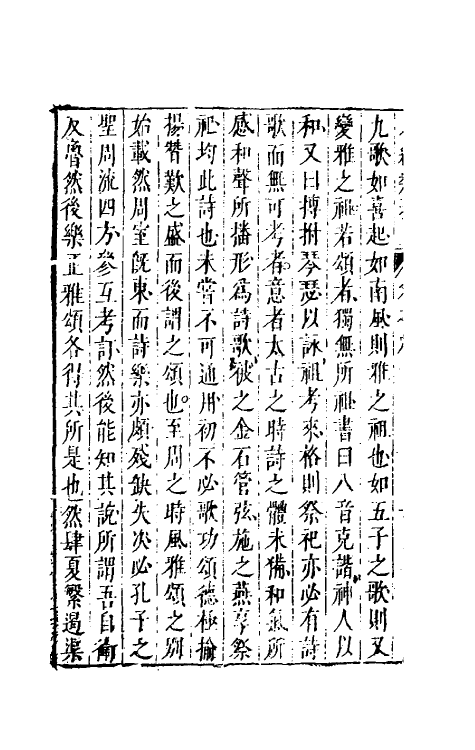 九歌如喜起如南風則雅之祖也如五子之歌則又
變雅之祖若頌者獨無所祖書曰八音克諧神人以
和又曰搏拊琴瑟以詠祖考來格則祭祀亦必有詩
歌而無可考者意者太古之時詩之體未備和氣所
感和聲所播形爲詩歌被之金石管弦施之燕享祭
祀均此詩也未嘗不可通用初不必歌功頌德極揄
揚贊歎之盛而後謂之頌也至周之時風雅頌之別
始載然周室旣東而詩樂亦頗殘缺失次必孔子之
聖周流四方參互考訂然後能知其說所謂吾自衞
反魯然後樂正雅頌各得其所是也然肆夏繁遏渠